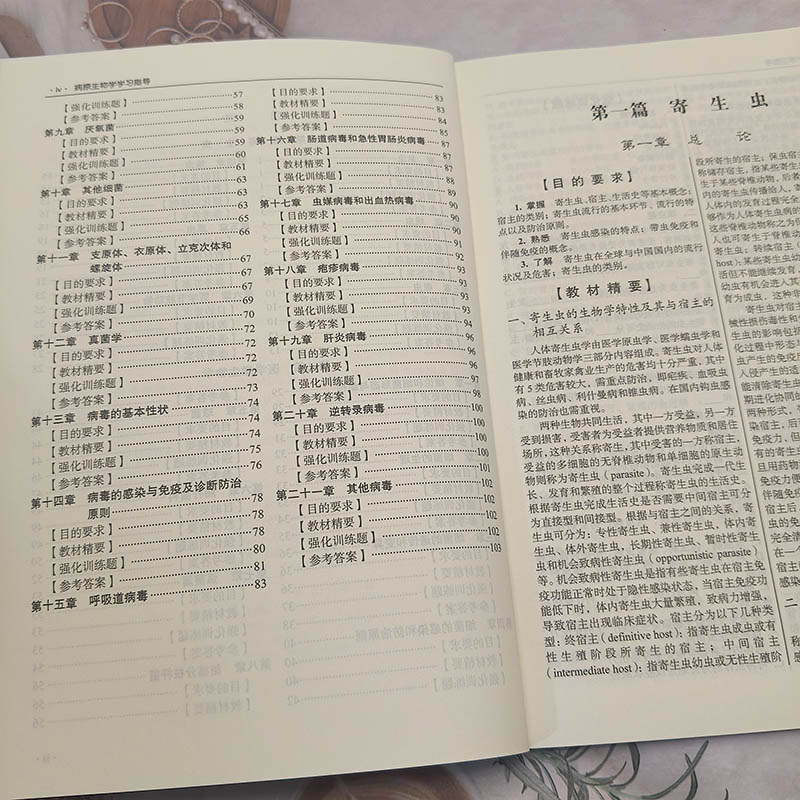 · iv · 病原生物学学习指导
【强化训练题】 57
【参考答案】 58
第九章 厌氧菌 59
【目的要求】 59
【教材精要】 60
【强化训练题】 61
【参考答案】 63
第十章 其他细菌 63
【目的要求】 63
【教材精要】 63
【强化训练题】 65
【参考答案】 66
第十一章 支原体、衣原体、立克次体和
螺旋体 67
【目的要求】 67
【教材精要】 67
【强化训练题】 69
【参考答案】 70
第十二章 真菌学 72
【目的要求】 72
【教材精要】 72
【强化训练题】 72
【参考答案】 73
第十三章 病毒的基本性状 74
【目的要求】 74
【教材精要】 74
【强化训练题】 75
【参考答案】 76
第十四章 病毒的感染与免疫及诊断防治
原则 78
【目的要求】 78
【教材精要】 78
【强化训练题】 80
【参考答案】 81
第十五章 呼吸道病毒 83
【目的要求】 83
【教材精要】 83
【强化训练题】 84
【参考答案】 85
第十六章 肠道病毒和急性胃肠炎病毒 87
【目的要求】 87
【教材精要】 87
【强化训练题】 88
【参考答案】 89
第十七章 虫媒病毒和出血热病毒 90
【目的要求】 90
【教材精要】 90
【强化训练题】 91
【参考答案】 92
第十八章 疱疹病毒 93
【目的要求】 93
【教材精要】 93
【强化训练题】 93
【参考答案】 94
第十九章 肝炎病毒 96
【目的要求】 96
【教材精要】 96
【强化训练题】 97
【参考答案】 98
第二十章 逆转录病毒 100
【目的要求】 100
【教材精要】 100
【强化训练题】 100
【参考答案】 101
第二十一章 其他病毒 102
【目的要求】 102
【教材精要】 102
【强化训练题】 102
【参考答案】 103
第一篇 寄生虫
第一章 总论
【目的要求】
1. 掌握 寄生虫、宿主、生活史等基本概念；
宿主的类别；寄生虫流行的基本环节、流行的特
点以及防治原则。
2. 熟悉 寄生虫感染的特点；带虫免疫和
伴随免疫的概念。
3. 了解 寄生虫在全球与中国国内的流行
状况及危害；寄生虫的类别。
【教材精要】
一、寄生虫的生物学特性及其与宿主的
相互关系
人体寄生虫学由医学原虫学、医学蠕虫学和
医学节肢动物学三部分内容组成。寄生虫对人体
健康和畜牧家禽业生产的危害均十分严重，其中
有 5 类危害较大，需重点防治，即疟疾、血吸虫
病、丝虫病、利什曼病和锥虫病。在国内钩虫感
染的防治也需重视。
两种生物共同生活，其中一方受益，另一方
受到损害，受害者为受益者提供营养物质和居住
场所，这种关系称寄生，其中受害的一方称宿主，
受益的多细胞的无脊椎动物和单细胞的原生动
物则称为寄生虫（parasite）。寄生虫完成一代生
长、发育和繁殖的整个过程称寄生虫的生活史。
根据寄生虫完成生活史是否需要中间宿主可分
为直接型和间接型。根据与宿主之间的关系，寄
生虫可分为：专性寄生虫、兼性寄生虫，体内寄
生虫、体外寄生虫，长期性寄生虫、暂时性寄生
虫和机会致病寄生虫（opportunistic parasite）
等。机会致病性寄生虫是指有些寄生虫在宿主免
疫功能正常时处于隐性感染状态，当宿主免疫功
能低下时，体内寄生虫大量繁殖，致病力增强，
导致宿主出现临床症状。宿主分为以下几种类
型：终宿主（definitive host）：指寄生虫成虫或有
性生殖阶段所寄生的宿主；中间宿主
（intermediate host）：指寄生虫幼虫或无性生殖阶
段所寄生的宿主；保虫宿主
称储存宿主，指某些寄生